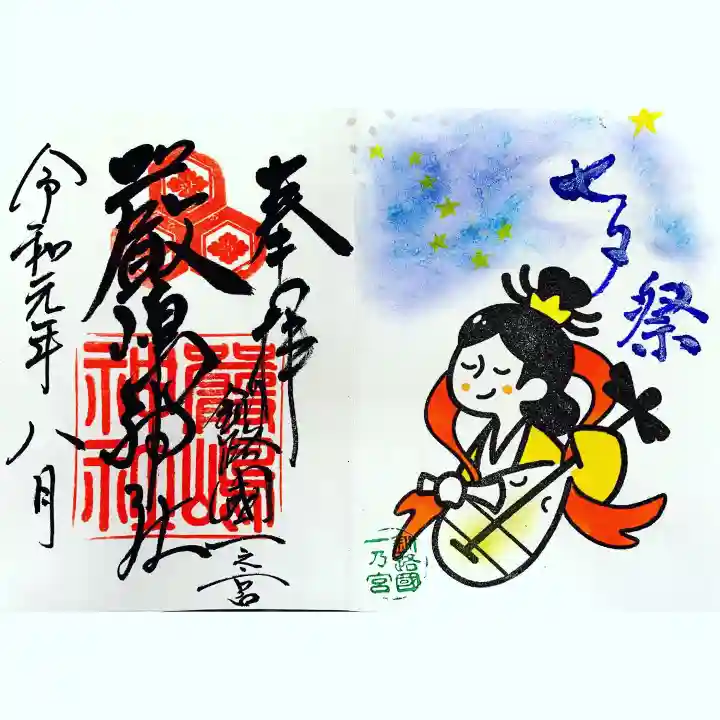 七夕祭
釧路國
一乃宮
奉拝
釧路國一之宮
厳島神社
嚴嶋
神社
令和元年八月